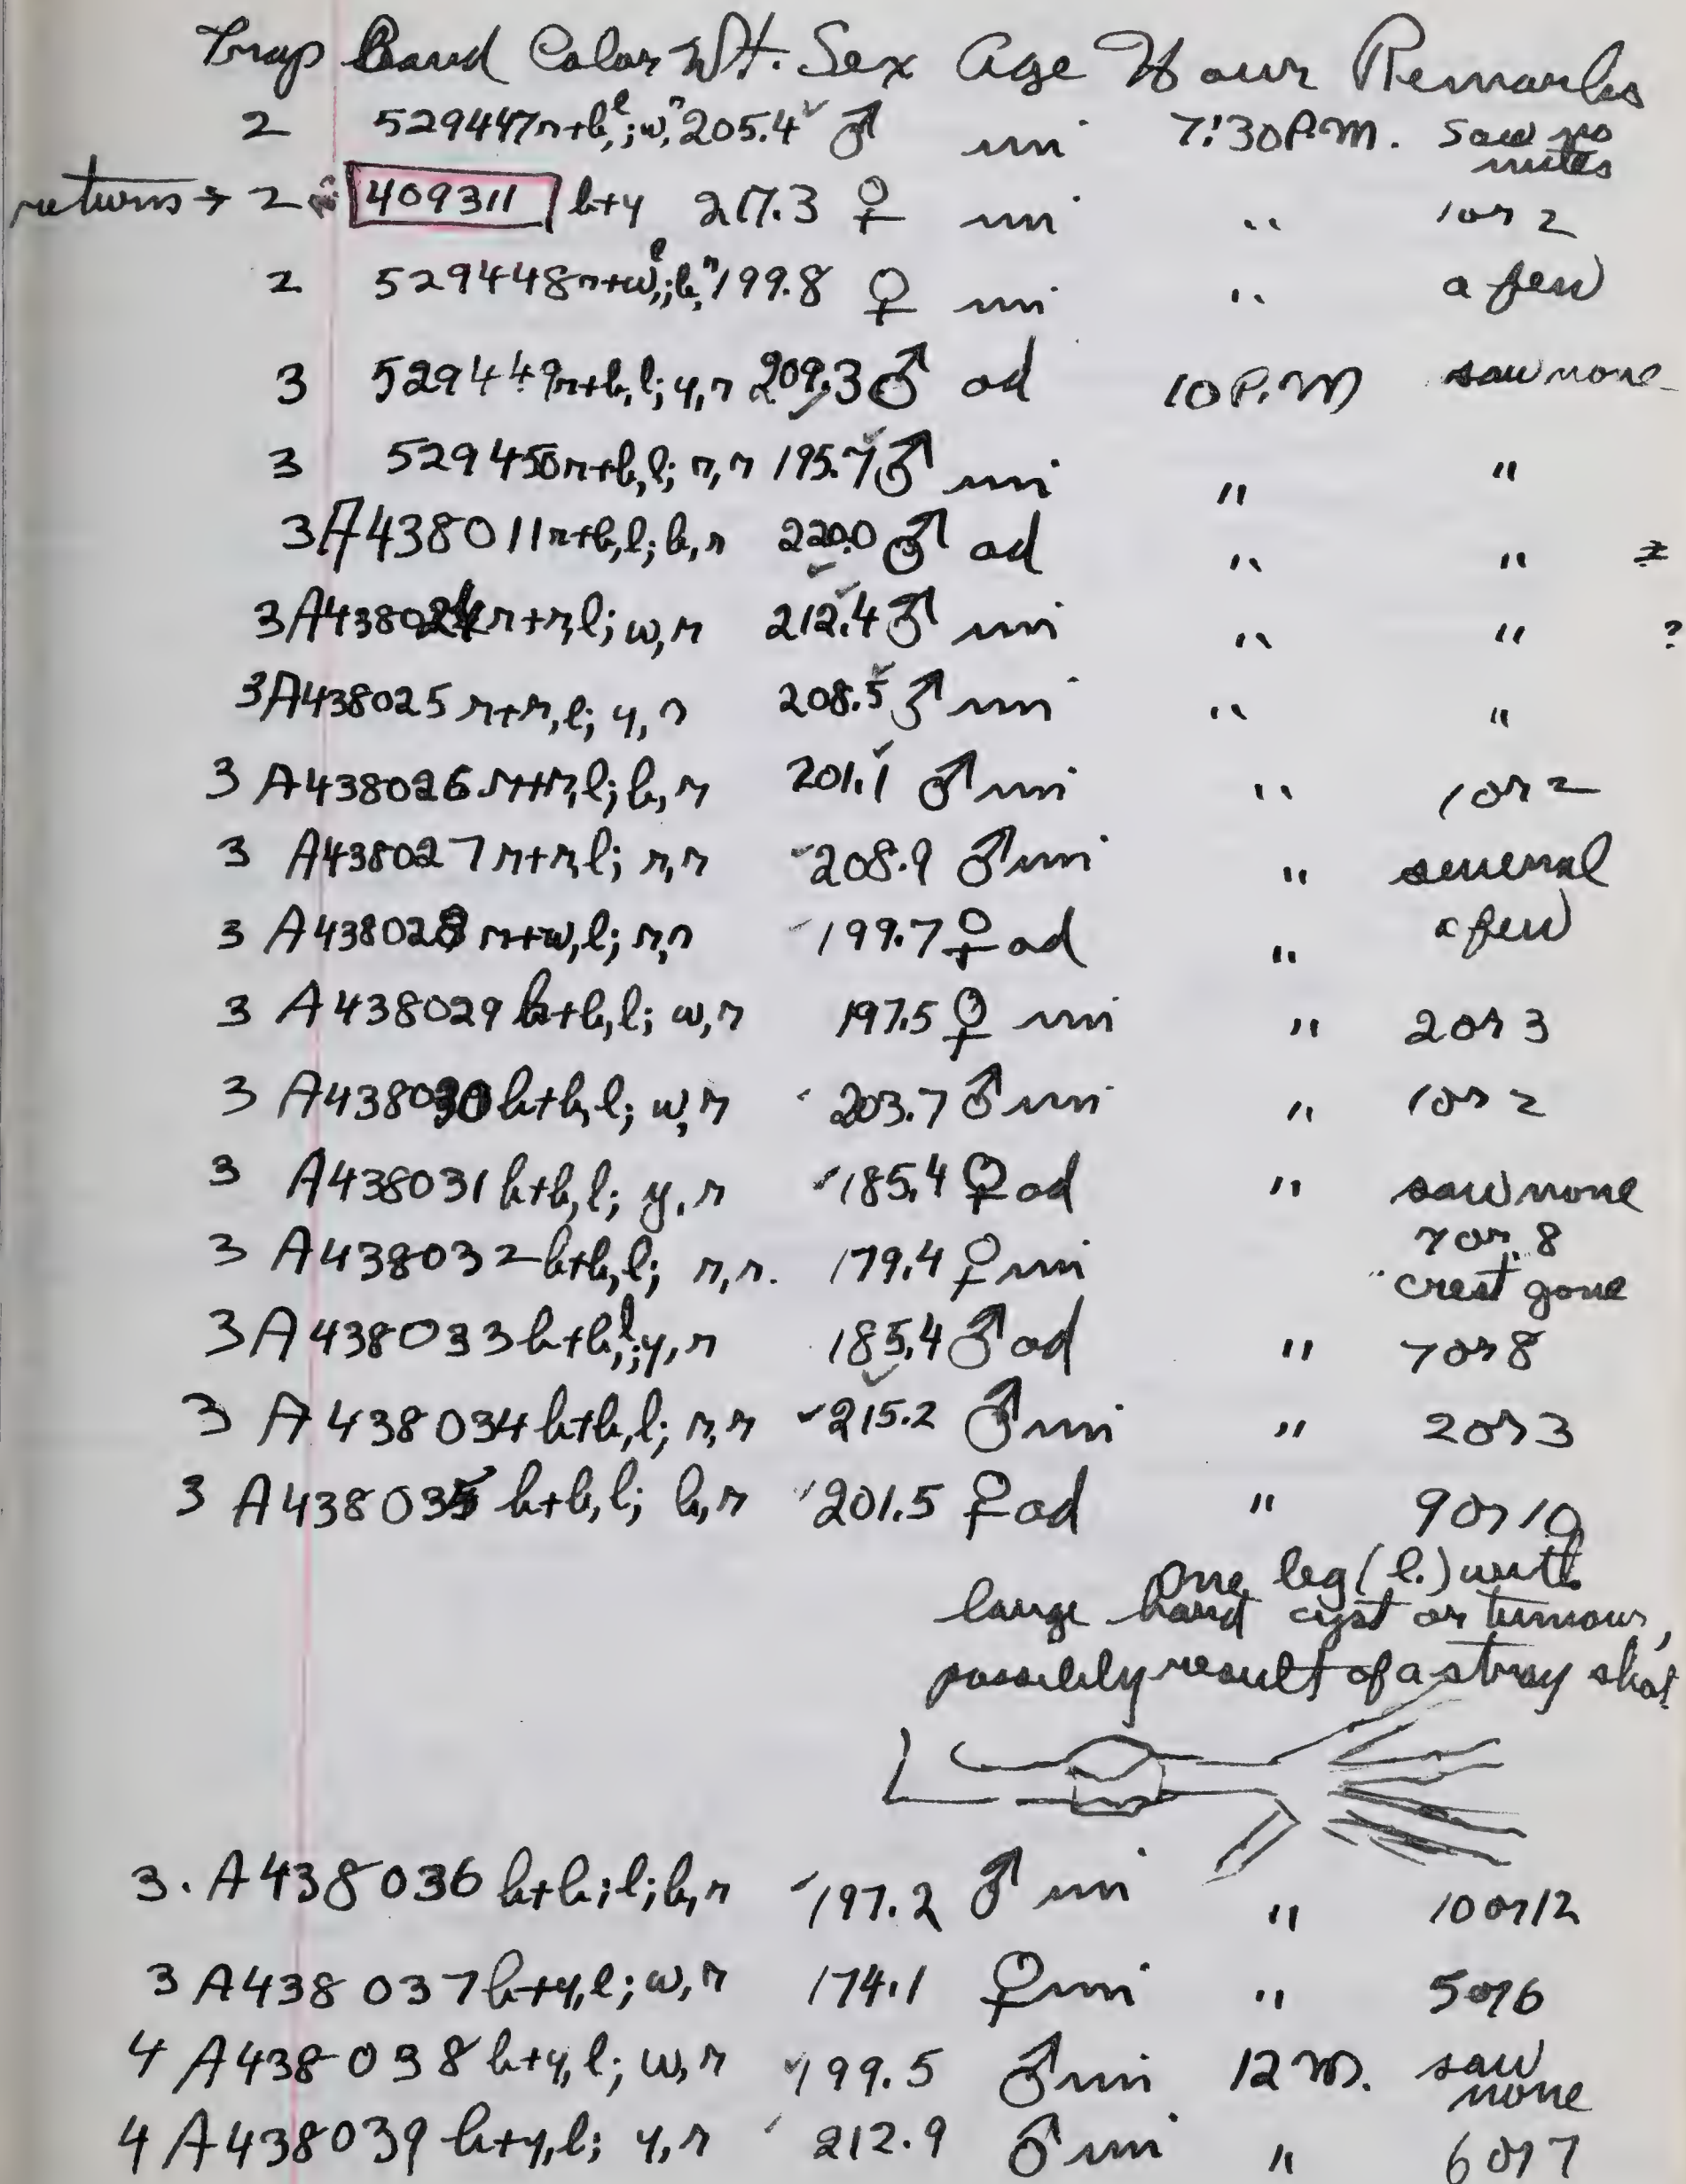 Trap Band Color Wt. Sex Age Hour Remarks
2 529447 r+b, l; w, r 205.4 ✓ ♂ im 7:30 P.M. Saw no mites
returns → 2 409311 b+y 217.3 ♀ im " 1 or 2
2 529448 r+w, l; b, r 199.8 ♀ im " a few
3 529449 r+b, l; y, r 209.3 ♂ ad 10 P.M saw none
3 529450 r+b, l; r, r 195.7 ♂ im " "
3 A438011 r+b, l; b, r 220.0 ♂ ad " "
3 A438024 r+r, l; w, r 212.4 ♂ im " " ?
3 A438025 r+r, l; y, r 208.5 ♂ im " "
3 A438026 r+r, l; b, r 201.1 ♂ im " 1 or 2
3 A438027 r+r, l; r, r 208.9 ♂ im " several
3 A438028 r+w, l; r, r 199.7 ♀ ad " a few
3 A438029 b+b, l; w, r 197.5 ♀ im " 2 or 3
3 A438030 b+b, l; w, r 203.7 ♂ im " 1 or 2
3 A438031 b+b, l; y, r 185.4 ♀ ad " saw none
3 A438032 b+b, l; r, r. 179.4 ♀ im " 7 or 8
crest gone
3 A438033 b+b, l; y, r 185.4 ♂ ad " 7 or 8
3 A438034 b+b, l; r, r 215.2 ♂ im " 2 or 3
3 A438035 b+b, l; b, r 201.5 ♀ ad " 9 or 10
one leg (l.) with
large hard cyst or tumour,
possibly result of a stray shot
3. A438036 b+b; l; b, r 197.2 ♂ im " 10 or 12
3 A438037 b+y, l; w, r 174.1 ♀ im " 5 or 6
4 A438038 b+y, l; w, r 199.5 ♂ im 12 M. saw none
4 A438039 b+y, l; y, r 212.9 ♂ im " 6 or 7